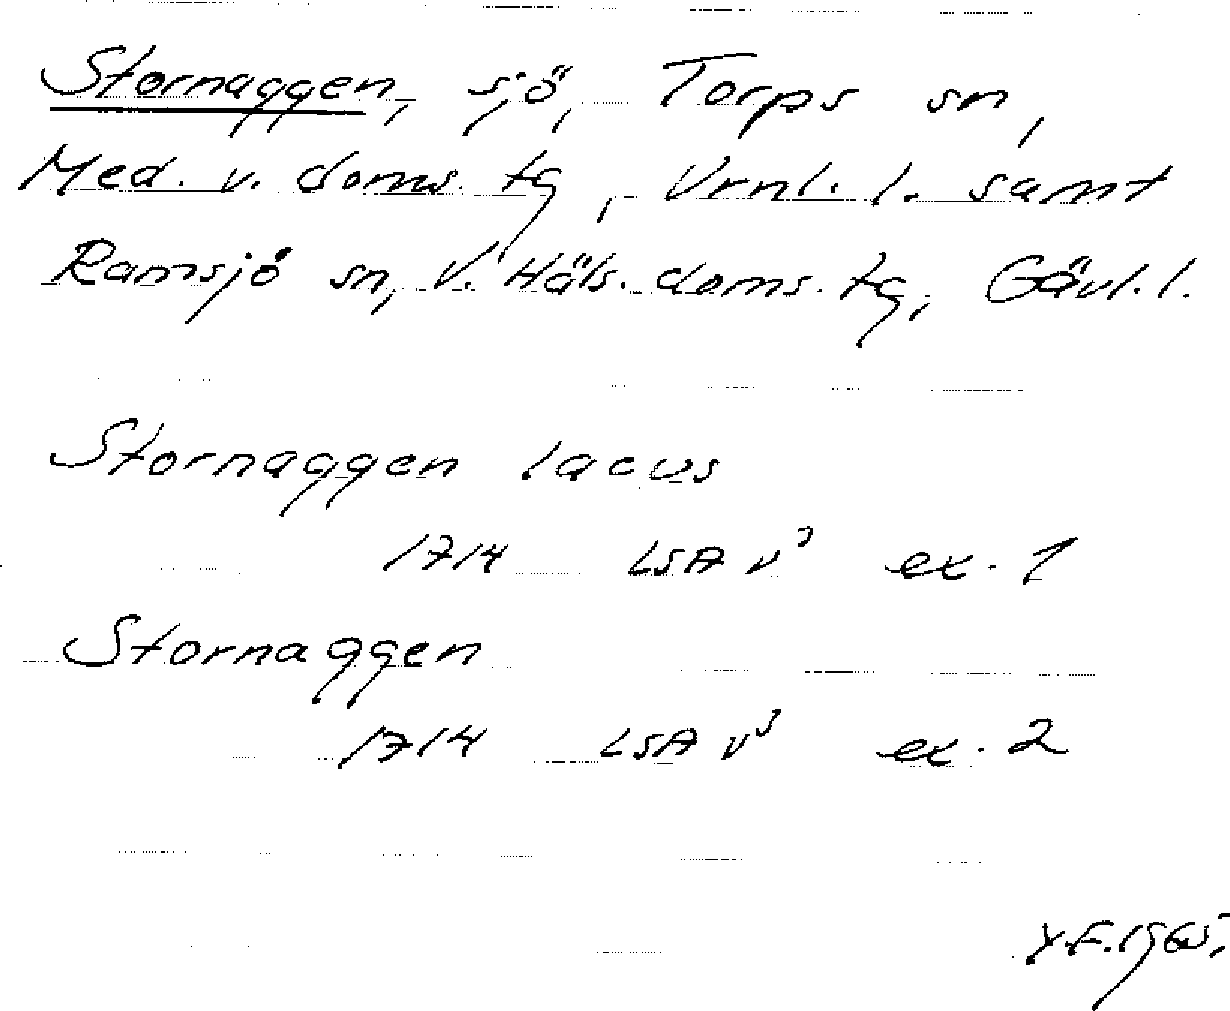 Stornaggen, sjö, Torps sn,
Med. v. doms. tg, Vrnl. l. samt
Ramsjö sn, V. Häls. doms. tg, Gävl. l.
Stornaggen lacus
1714 LSA v³ ex. 1
Stornaggen
1714 LSA v³ ex. 2
Y.F. 1965.